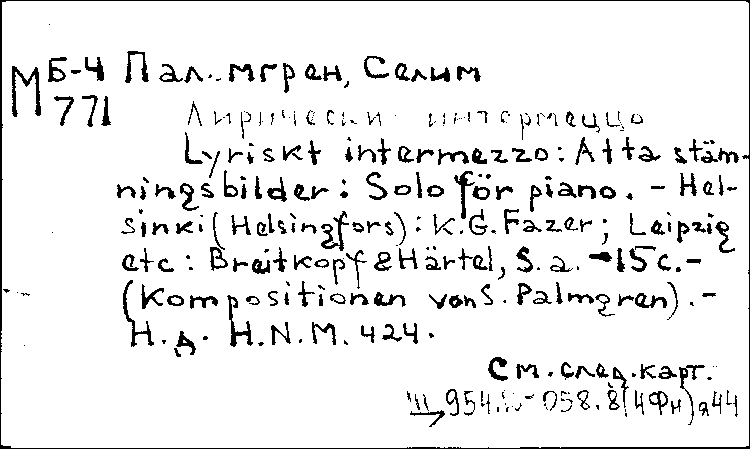 М Б-4 Палмгрен, Селим
771
Лирически интермеццо
Lyriskt intermezzo: Atta stäm-
ningsbilder: Solo för piano. - Hel-
sinki (Helsingfors): K.G. Fazer; Leipzig
etc: Breitkopf & Härtel, S. a. - 15 c. -
(Kompositionen von S. Palmgren). -
Н.д. H.N.M. 424.
См. след. карт.
058.8(4Фн)я44